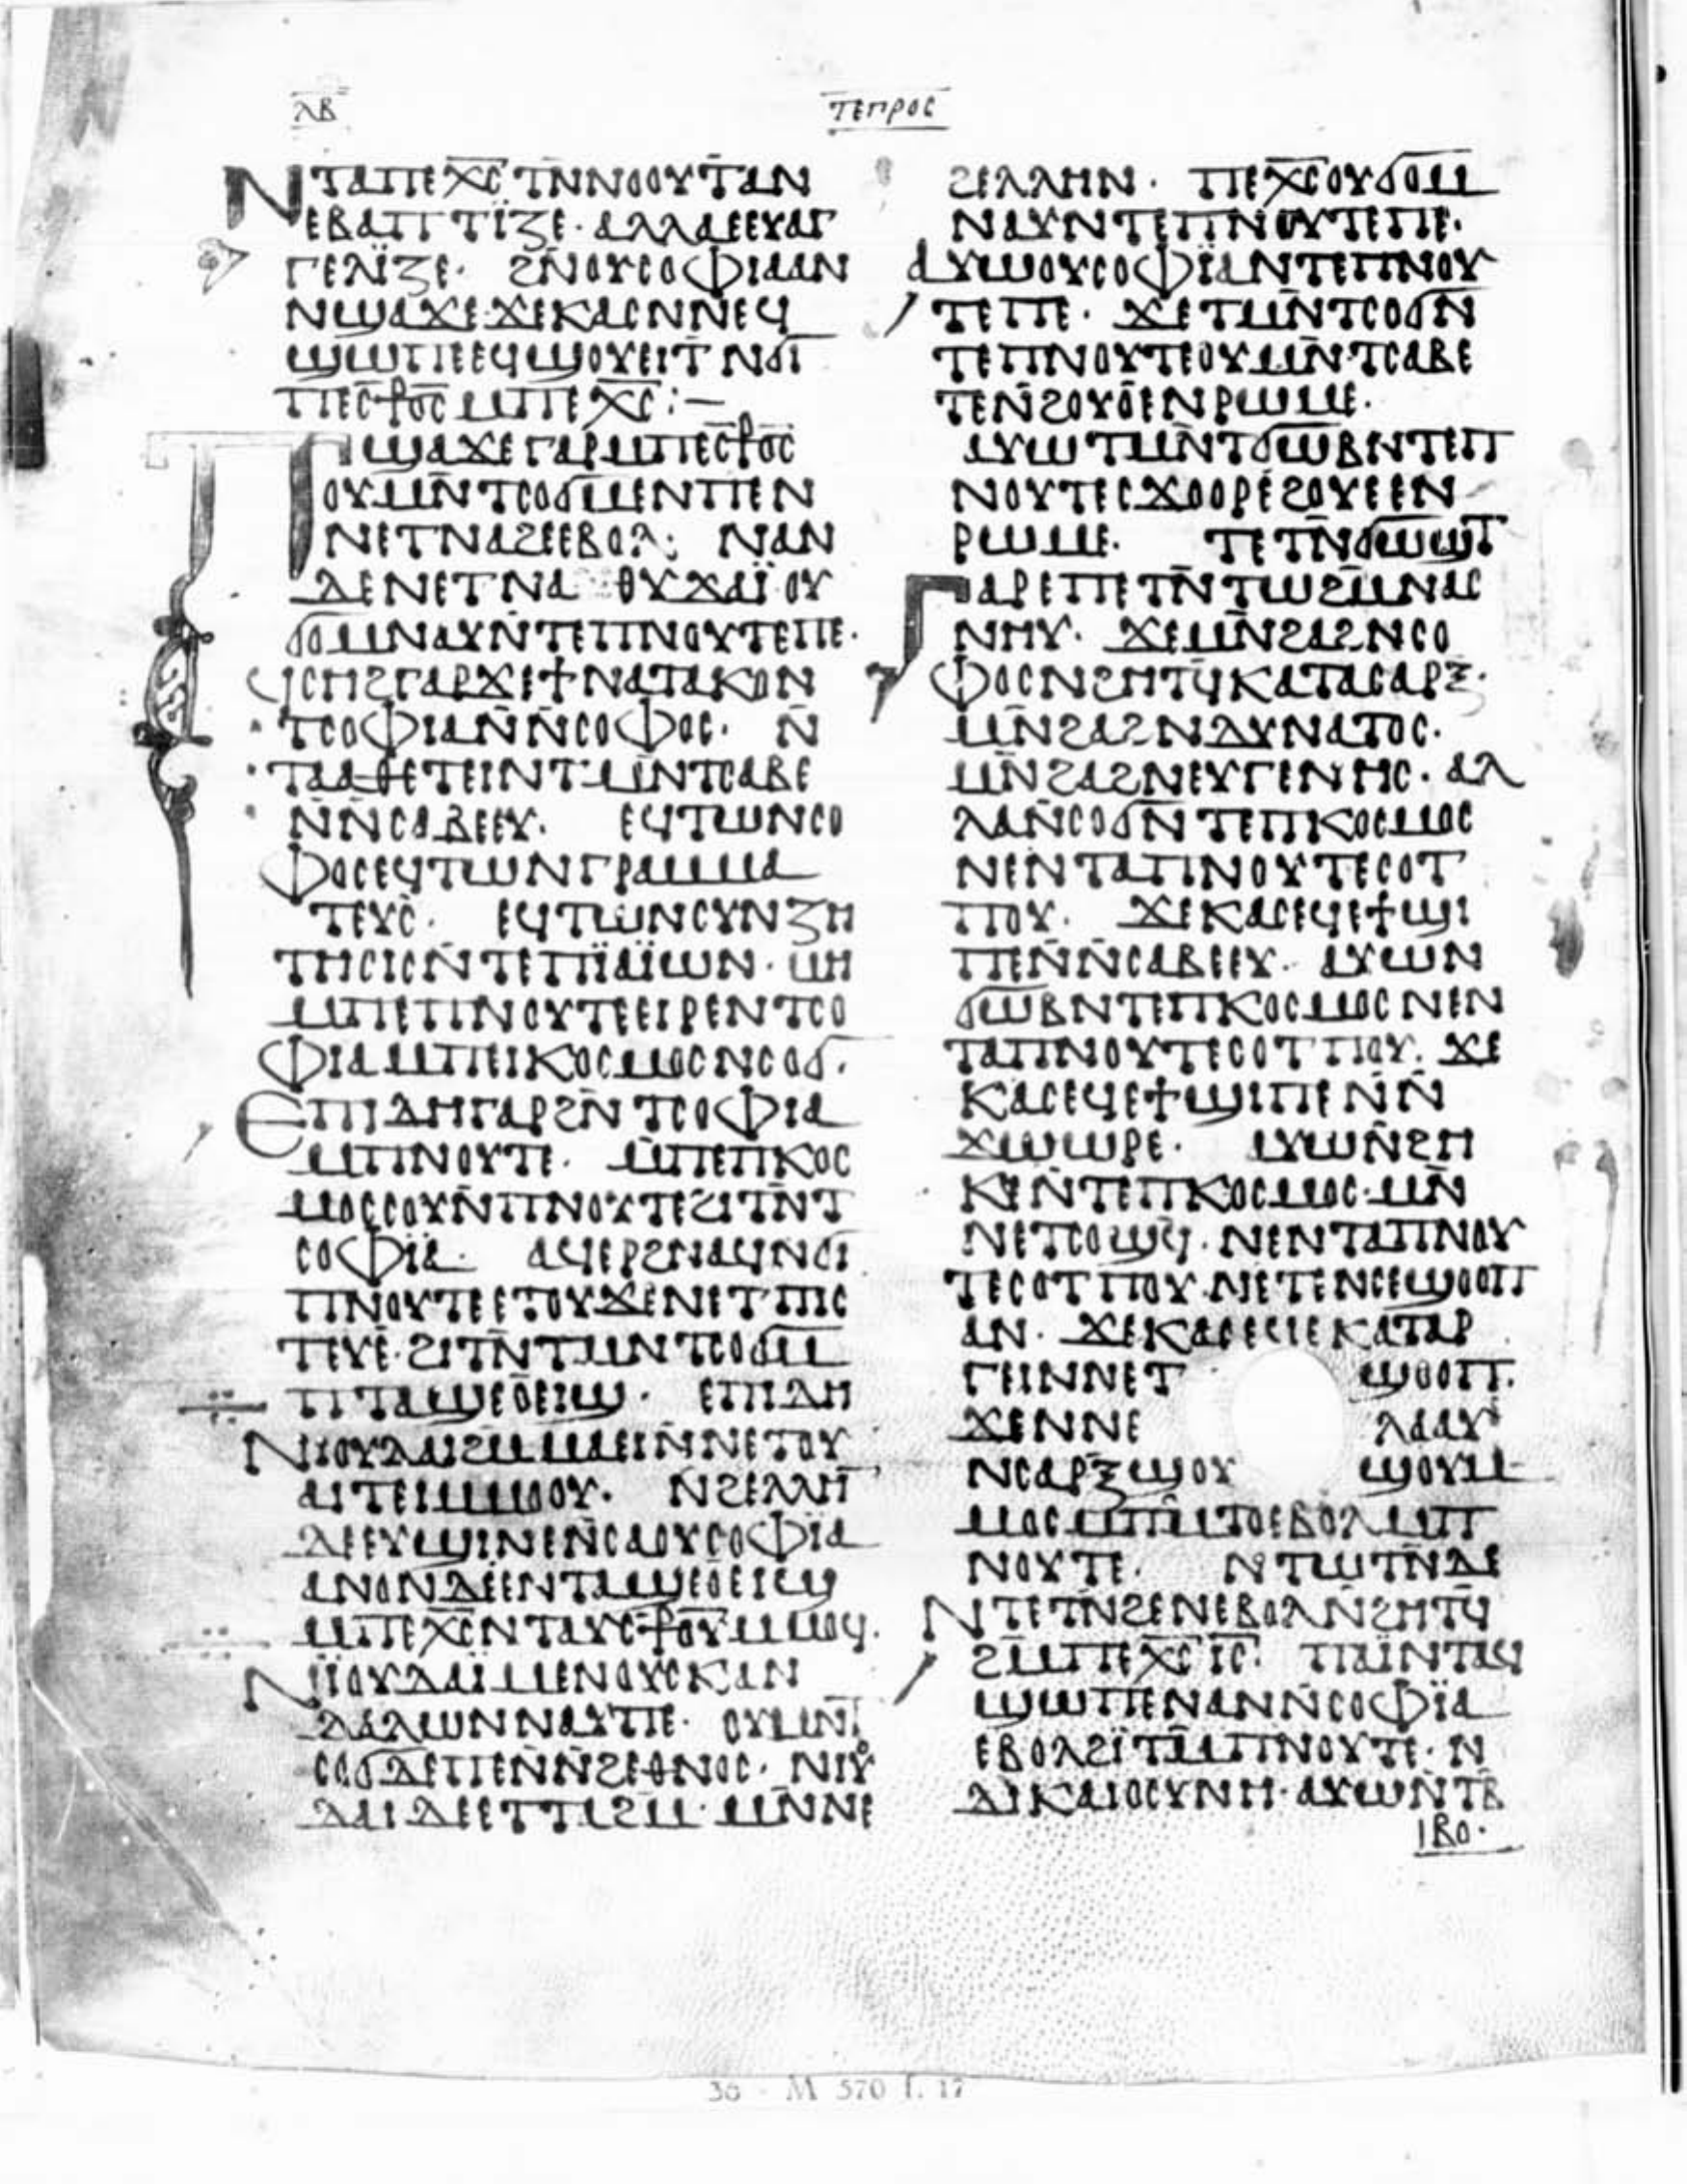 ⲗⲃ ⲧⲉⲡⲣⲟⲥ
Ⲛⲧⲁⲡⲉⲭ̅ⲥ̅ⲧⲛ̅ⲛⲟⲟⲩⲧ̅ⲁⲛ
ⲉⲃⲁⲡⲧⲓⲍⲉ· ⲁⲗⲗⲁⲉⲉⲩⲁⲅ
ⲅⲉⲗⲓⲍⲉ· ϩⲛ̅ⲟⲩⲥⲟⲫⲓⲁⲁⲛ
ⲛϣⲁϫⲉ·ϫⲉⲕⲁⲥⲛ̅ⲛⲉϥ
ϣⲱⲡⲉⲉϥϣⲟⲩⲉⲓⲧⲛϭⲓ
ⲡⲉⲥ̅ⳁⲟ̅ⲥ̅ⲙⲡⲉⲭ̅ⲥ̅:—
Ⲡϣⲁϫⲉⲅⲁⲣⲙⲡⲉⲥ̅ⳁⲟ̅ⲥ̅
ⲟⲩⲙⲛ̅ⲧⲥⲟϭⲙⲉⲛⲧⲡⲉⲛ
ⲛⲉⲧⲛⲁϩⲉⲉⲃⲟⲗ: ⲛⲁⲛ
ⲇⲉⲛⲉⲧⲛⲁ ⲟⲩϫⲁⲓ̈ ⲟⲩ
ϭⲟⲙⲛⲁⲩⲛ̅ⲧⲉⲡⲛⲟⲩⲧⲉⲡⲉ·
ϥⲥⲏϩⲅⲁⲣϫⲉϯⲛⲁⲧⲁⲕⲟⲛ
ⲧⲥⲟⲫⲓⲁⲛ̅ⲛ̅ⲥⲟⲫⲟⲥ· ⲛ̅
ⲧⲁⲁⲑⲉⲧⲉⲓⲛⲧⲙⲛ̅ⲧⲥⲁⲃⲉ
ⲛ̅ⲛ̅ⲥⲁⲃⲉⲉⲩ· ⲉϥⲧⲱⲛⲥⲟ
ⲫⲟⲥⲉϥⲧⲱⲛⲅⲣⲁⲙⲙⲁ
ⲧⲉⲩⲥ· ⲉϥⲧⲱⲛⲥⲩⲛⲍⲏ
ⲧⲏⲥⲓⲥⲛ̅ⲧⲉⲡⲓ̈ⲁⲓ̈ⲱⲛ· ⲙⲏ
ⲙⲡⲉⲡⲛⲟⲩⲧⲉⲉⲓⲣⲉⲛⲧⲥⲟ
ⲫⲓⲁⲙⲡⲉⲓⲕⲟⲥⲙⲟⲥⲛⲥⲟϭ·
Ⲉⲡⲓⲇⲏⲅⲁⲣϩⲛ̅ⲧⲥⲟⲫⲓⲁ
ⲙⲡⲛⲟⲩⲧⲉ· ⲙ̅ⲡⲉⲡⲕⲟⲥ
ⲙⲟⲥⲥⲟⲩⲛ̅ⲡⲛⲟⲩⲧⲉϩⲓⲧⲛ̅ⲧ
ⲥⲟⲫⲓ̈ⲁ· ⲁϥⲉⲣϩⲛⲁϥⲛϭⲓ
ⲡⲛⲟⲩⲧⲉⲉⲧⲟⲩϫⲉⲛⲉⲧⲡⲓⲥ
ⲧⲉⲩⲉ·ϩⲓⲧⲛ̅ⲧⲙⲛⲧⲥⲟϭⲙ̅
ⲡⲧⲁϣⲉⲟⲉⲓϣ· ⲉⲡⲓⲇⲏ
Ⲛⲓⲟⲩⲇⲁⲓϩⲙⲙⲁⲉⲓⲛⲛⲉⲧⲟⲩ
ⲁⲓⲧⲉⲓⲙⲙⲟⲟⲩ· ⲛ̅ϩⲉⲗⲗⲏ
ⲇⲉⲉⲩϣⲓⲛⲉⲛ̅ⲥⲁⲟⲩⲥⲟⲫⲓ̈ⲁ
ⲁⲛⲟⲛⲇⲉⲉⲛⲧⲁϣⲉⲟⲉⲓϣ
ⲙⲡⲉⲭ̅ⲥ̅ⲛⲧⲁⲩⲥ̅ⳁⲟ̅ⲩ̅ⲙⲙⲟϥ·
Ⲛⲓ̈ⲟⲩⲇⲁⲓ̈ⲙⲉⲛⲟⲩⲥⲕⲁⲛ
ⲇⲁⲗⲱⲛⲛⲁⲩⲡⲉ· ⲟⲩⲙⲛ̅ⲧ
ⲥⲟϭⲇⲉⲡⲉⲛ̅ⲛ̅ϩⲉⲑⲛⲟⲥ· ⲛⲓⲟⲩ
ⲇⲁⲓⲇⲉⲉⲧⲧⲁϩⲙ· ⲙⲛ̅ⲛⲉ
ϩⲉⲗⲗⲏⲛ· ⲡⲉⲭ̅ⲥ̅ⲟⲩϭⲟⲙ
ⲛⲁⲩⲛⲧⲉⲡⲛⲟⲩⲧⲉⲡⲉ·
ⲁⲩⲱⲟⲩⲥⲟⲫⲓ̈ⲁⲛⲧⲉⲡⲛⲟⲩ
ⲧⲉⲡⲉ· ϫⲉⲧⲙⲛ̅ⲧⲥⲟϭⲛ
ⲧⲉⲡⲛⲟⲩⲧⲉⲟⲩⲙⲛ̅ⲧⲥⲁⲃⲉ
ⲧⲉⲛ̅ϩⲟⲩⲟ̅ⲉⲛⲣⲱⲙⲉ·
ⲁⲩⲱⲧⲙⲛ̅ⲧϭⲱⲃⲛⲧⲉⲡ
ⲛⲟⲩⲧⲉⲥϫⲟⲟⲣⲉϩⲟⲩⲉⲉⲛ
ⲣⲱⲙⲉ· ⲧⲉⲧⲛ̅ϭⲱϣⲧ
Ⲅⲁⲣⲉⲡⲉⲧⲛ̅ⲧⲱϩⲙ̅ⲛⲁⲥ
ⲛⲏⲩ· ϫⲉⲙⲛ̅ϩⲁϩⲛⲥⲟ
ⲫⲟⲥⲛϩⲏⲧϥⲕⲁⲧⲁⲥⲁⲣⲝ·
ⲙⲛ̅ϩⲁϩⲛⲇⲩⲛⲁⲧⲟⲥ·
ⲙⲛ̅ϩⲁϩⲛⲉⲩⲅⲉⲛⲏⲥ· ⲁⲗ
ⲗⲁⲛ̅ⲥⲟϭⲛ̅ⲧⲉⲡⲕⲟⲥⲙⲟⲥ
ⲛⲉⲛⲧⲁⲡⲛⲟⲩⲧⲉⲥⲟⲧ
ⲡⲟⲩ· ϫⲉⲕⲁⲥⲉϥⲉϯϣⲓ
ⲡⲉⲛ̅ⲛ̅ⲥⲁⲃⲉⲉⲩ· ⲁⲩⲱⲛ
ϭⲱⲃⲛⲧⲉⲡⲕⲟⲥⲙⲟⲥⲛⲉⲛ
ⲧⲁⲡⲛⲟⲩⲧⲉⲥⲟⲧⲡⲟⲩ· ϫⲉ
ⲕⲁⲥⲉϥⲉϯϣⲓⲡⲉⲛ̅ⲛ̅
ϫⲱⲱⲣⲉ· ⲁⲩⲱⲛ̅ϩⲏ
ⲕⲉⲛ̅ⲧⲉⲡⲕⲟⲥⲙⲟⲥ·ⲙⲛ̅
ⲛⲉⲧⲥⲟϣϥ·ⲛⲉⲛⲧⲁⲡⲛⲟⲩ
ⲧⲉⲥⲟⲧⲡⲟⲩ·ⲛⲉⲧⲉⲛⲥⲉϣⲟⲟⲡ
ⲁⲛ· ϫⲉⲕⲁⲥⲉϥⲉⲕⲁⲧⲁⲣ
ⲅⲉⲓⲛⲛⲉⲧ ϣⲟⲟⲡ·
ϫⲉⲛⲛⲉ ⲗⲁⲁⲩ
ⲛⲥⲁⲣⲝϣⲟⲩ ϣⲟⲩⲙ
ⲙⲟⲥⲙⲡⲙ̅ⲧⲟⲉⲃⲟⲗⲙⲡ
ⲛⲟⲩⲧⲉ· ⲛⲧⲱⲧⲛ̅ⲇⲉ
Ⲛⲧⲉⲧⲛ̅ϩⲉⲛⲉⲃⲟⲗⲛ̅ϩⲏⲧϥ
ϩⲙ̅ⲡⲉⲭ̅ⲥ̅ⲓ̅ⲥ̅· ⲡⲁⲓ̈ⲛⲧⲁϥ
ϣⲱⲡⲉⲛⲁⲛⲛ̅ⲥⲟⲫⲓ̈ⲁ
ⲉⲃⲟⲗϩⲓ̈ⲧⲙ̅ⲡⲛⲟⲩⲧⲉ· ⲛ
ⲇⲓⲕⲁⲓⲟⲥⲩⲛⲏ·ⲁⲩⲱⲛ̅ⲧⲃ
ⲓⲃⲟ·
36 - M 570 f. 17